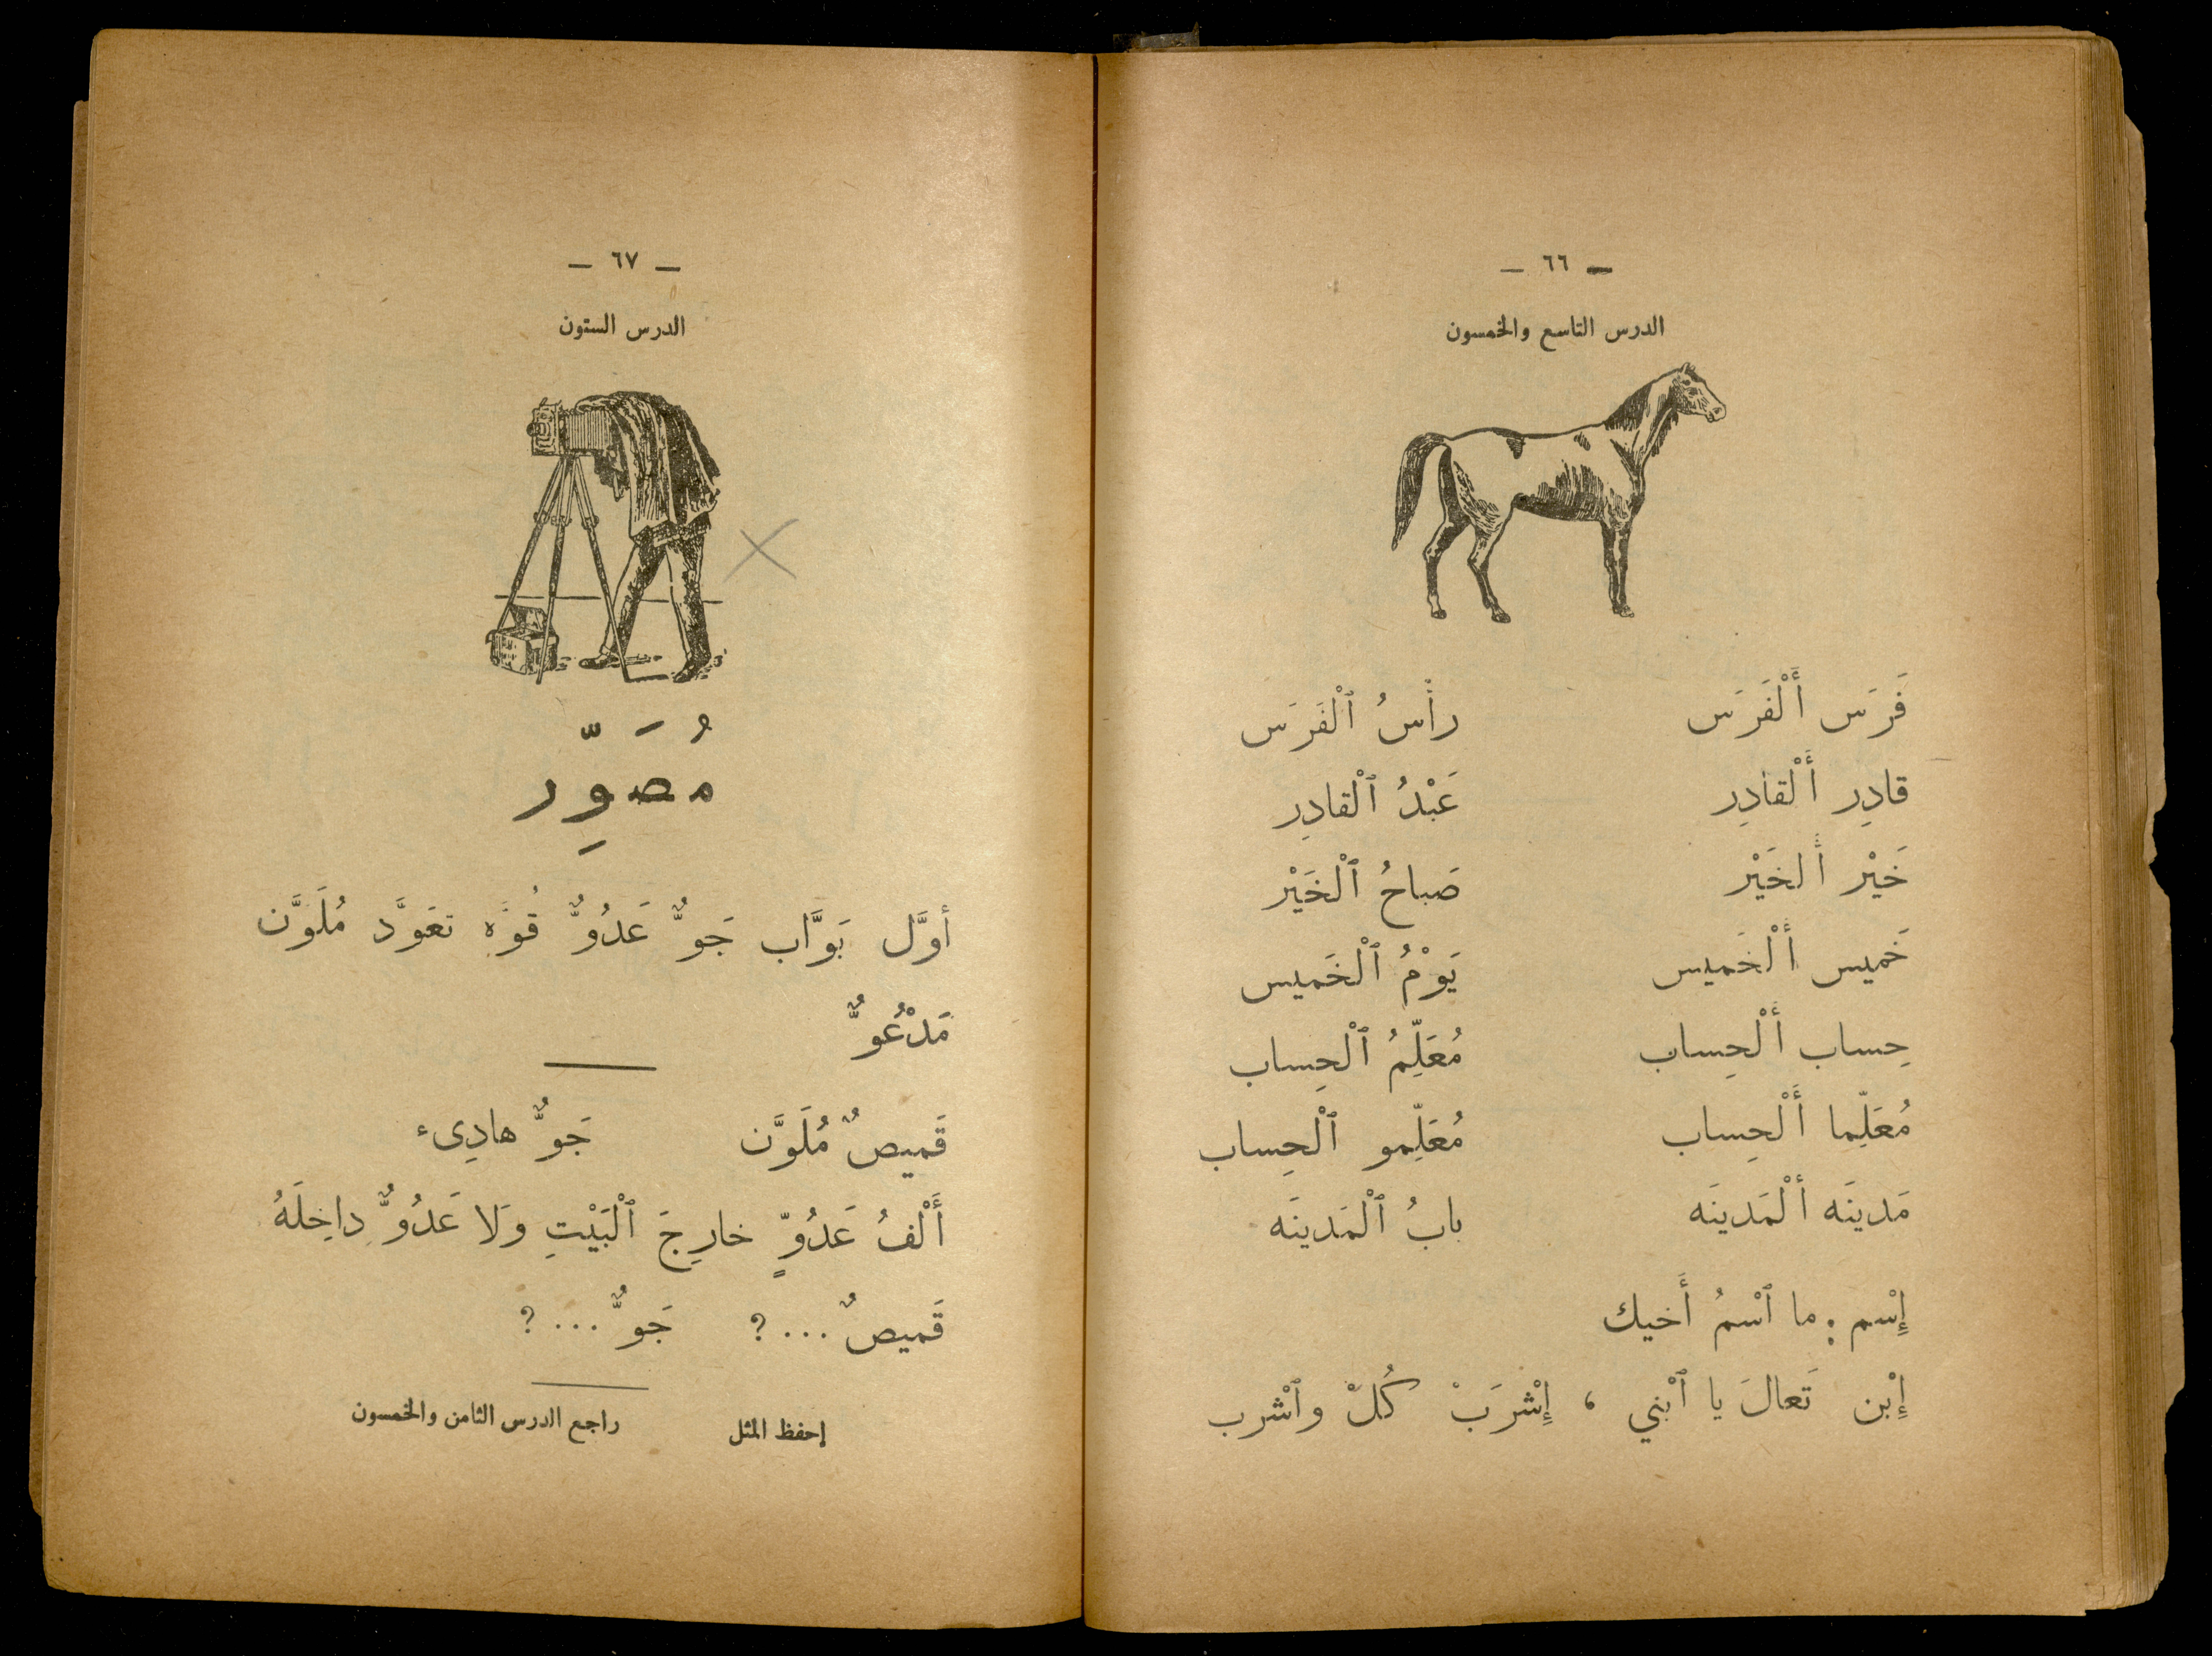 — ٦٦ —
الدرس التاسع والخمسون
فَرَس أَلْفَرَس رأْسُ ٱلْفَرَس
قادِر أَلْقادِر عَبْدُ ٱلْقادِر
خَيْر أَلْخَيْر صَباحُ ٱلْخَيْر
خَميس أَلْخَميس يَوْمُ ٱلْخَميس
حِساب أَلْحِساب مُعَلِّمُ ٱلْحِساب
مُعَلِّما أَلْحِساب مُعَلِّمو ٱلْحِساب
مَدينَه أَلْمَدينَه بابُ ٱلْمَدينَه
إِسْم : ما ٱسْمُ أَخيك
إِبْن تَعالَ يا ٱبْني ، إِشْرَبْ كُلْ وٱشْرب
— ٦٧ —
الدرس الستون
ُ َ ّ
مُصَوِّر
أوَّل بَوَّاب جَوٌّ عَدُوٌّ قُوَّه تعَوَّد مُلَوَّن
مَدْعُوٌّ
قَميصٌ مُلَوَّن جَوٌّ هادِىء
أَلْفُ عَدُوٍّ خارِجَ ٱلْبَيْتِ وَلا عَدُوٌّ داخِلَهُ
قَميصٌ ...؟ جَوٌّ ...؟
إحفظ المثل راجع الدرس الثامن والخمسون